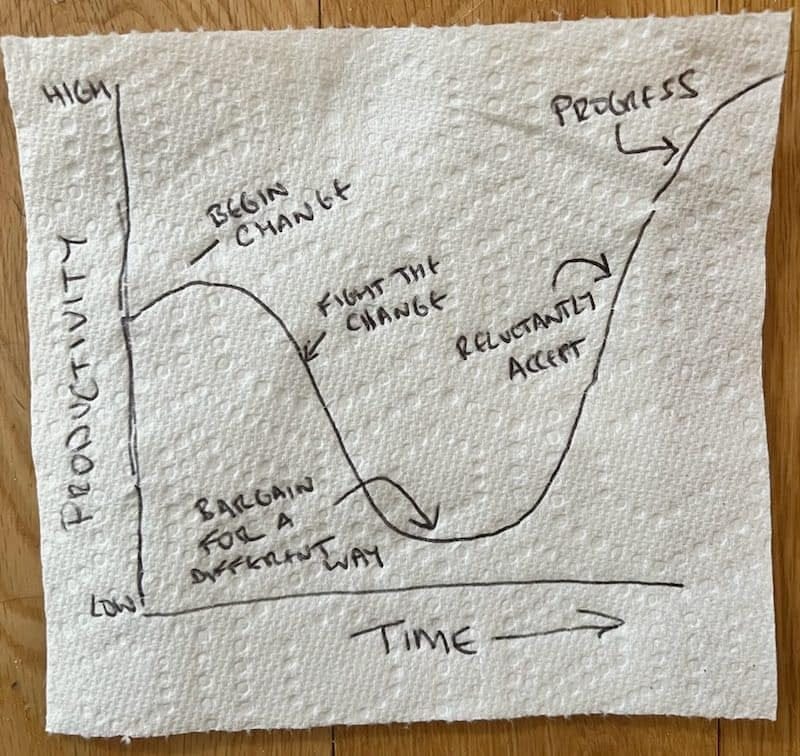 HIGH
PROGRESS
BEGIN
CHANGE
FIGHT THE
CHANGE
PRODUCTIVITY
RELUCTANTLY
ACCEPT
BARGAIN
FOR A
DIFFERENT WAY
LOW
TIME